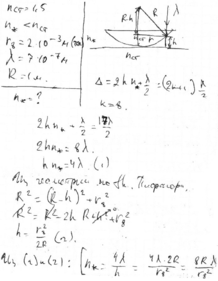 n_ст = 1,5
n* < n_ст
r_8 = 2·10^-3 м
λ = 7·10^-7 м
R = 1 м.
n* = ?
R
R-h
λ
n*
n_ст
r
h
n_ст
Δ = 2hn* + λ/2 = (2k+1) λ/2
k = 8.
2hn* + λ/2 = 17λ/2
2hn* = 8λ.
hn* = 4λ (1)
Из геометрии по Th. Пифагора.
R² = (R-h)² + r_8²
R² = R² - 2hR + h² + r_8²
h = r_8²/2R (2).
Из (1) и (2): [n* = 4λ/h = 4λ·2R/r_8² = 8Rλ/r_8²